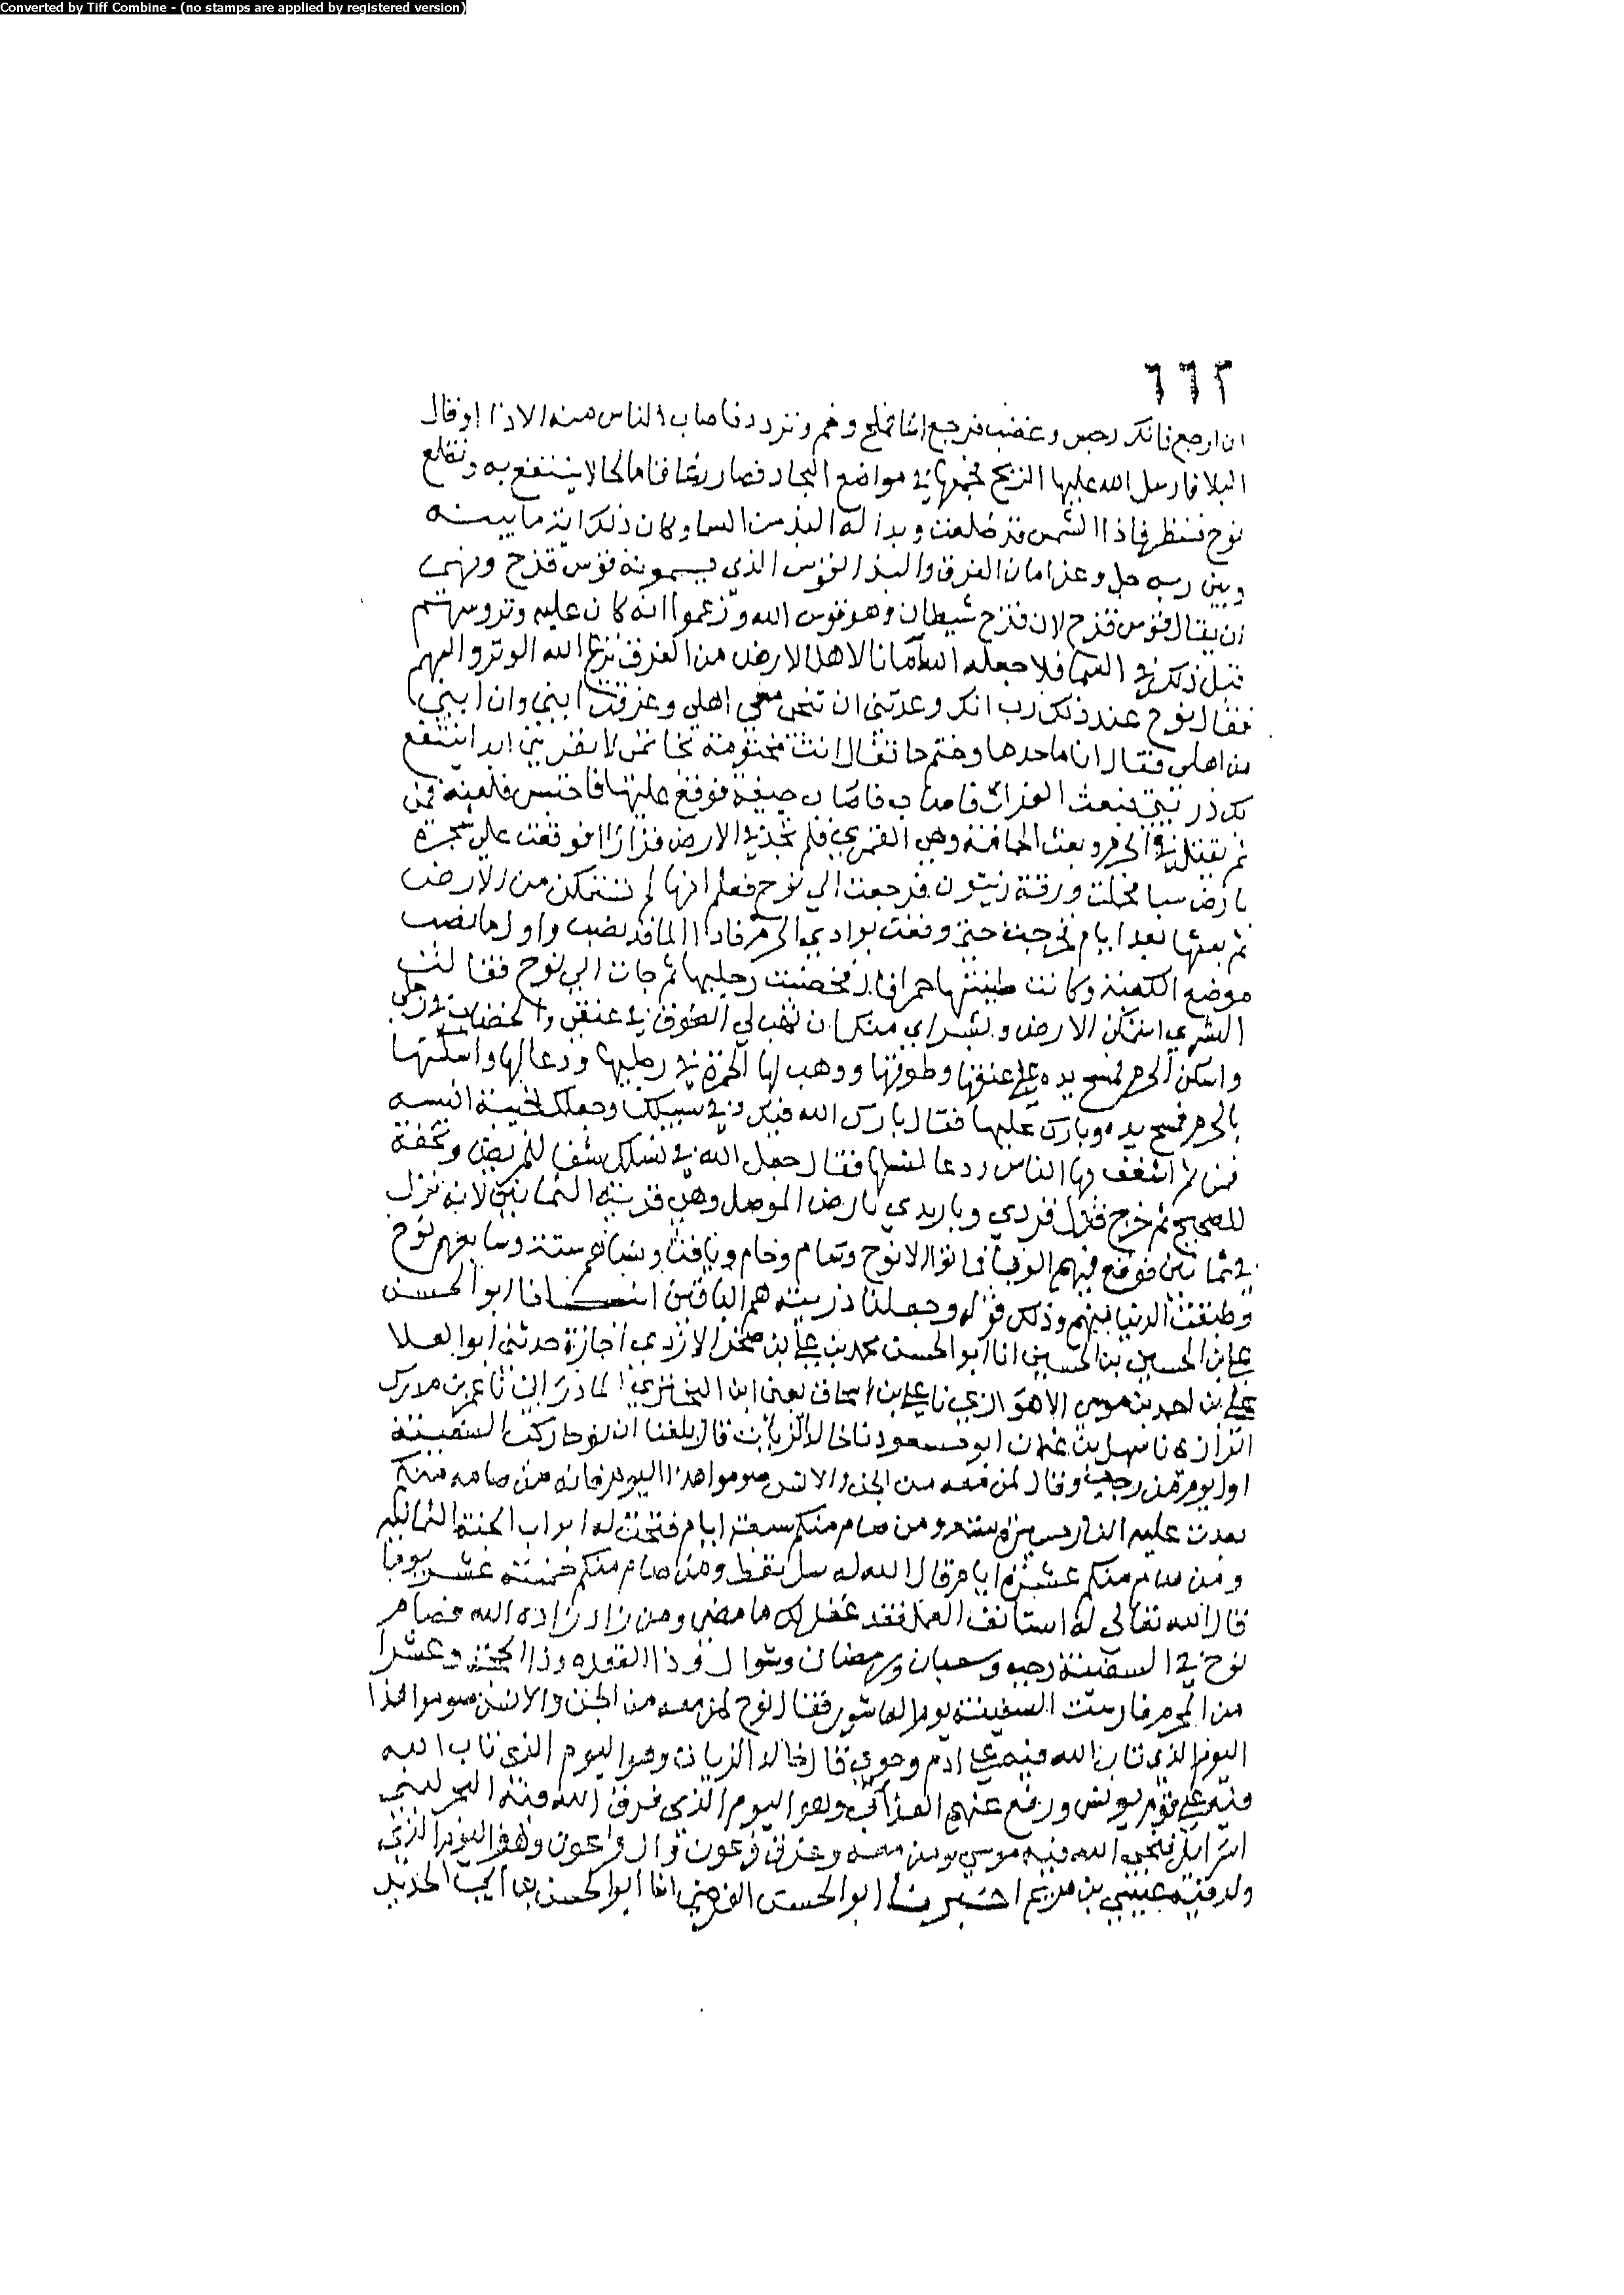 Converted by Tiff Combine - (no stamps are applied by registered version)
٦٦٢
ان ارجع فانك رجس وغضب فرجع الما ملح وهم وتردد فاصاب الناس منه الاذا او قال
البلا فارسل الله عليها الريح فجمعها في مواضع البحار فصار زعاقا مالحا لا ينتفع به وتطلع
نوح فنظر فاذا الشمس قد طلعت وبدا له اليد من السما وكان ذلك اية ما بينه
وبين ربه جل وعز امان الغرق واليد القوس الذي يسمونه قوس قزح ونهى
ان يقال قوس قزح لان قزح شيطان وهو قوس الله وزعموا انه كان عليه وتر وسهم
قبل ذلك في السما فلما جعله الله امانا لاهل الارض من الغرق نزع الله الوتر والسهم
فقال نوح عند ذلك رب انك وعدتني ان تنجي معي اهلي وغرقت ابني وان ابني
من اهلي
لك ذريتي فبعث الغراب فاصاب جيفة فوقع عليها فاحتبس فلعنه فمن
ثم يقتل في الحرم وبعث الحمامة وهي القمري فلم تجد في الارض قرارا فوقعت على شجرة
بارض سبا فحملت ورقة زيتون فرجعت الى نوح فعلم انها لم تستمكن من الارض
ثم بعثها بعد ايام فخرجت حتى وقعت بوادي الحرم فاذا الما قد نضب واول ما نضب
موضع الكعبة وكانت طينتها حمرا فخضبت رجليها ثم جات الى نوح فقالت
البشرى استمكن الارض وبشراي منك ان تهب لي الطوق في عنقي والخضاب في رجلي
واسكن الحرم فمسح يده على عنقها وطوقها ووهب لها الحمرة في رجليها ودعا لها واسكنها
بالحرم فمسح يده وبارك عليها فقال بارك الله فيك وفي نسلك وجعلك
فمن ثم اشغف بها الناس ودعا لنسلها فقال جعل الله في نسلك شفا للمريض وتحفة
للصحيح ثم خرج فنزل قردى وباريدي بارض الموصل وهي قرية الثمانين لانه نزل
في ثمانين فوقع فيهم الوبا فماتوا الا نوح وسام وحام ويافث ونساهم ستة وسابعهم نوح
وطبقت الدنيا منهم وذلك قوله وجعلنا ذريته هم الباقين انبانا ابو الحسن
علي بن الحسين بن الحسين انا ابو الحسن محمد بن علي بن صخر الازدي اجازة حدثني ابو العلا
علي بن احمد بن موسى الاهوازي نا علي بن اسحاق يعني ابن البختري المادرائي نا عمر بن مدرك
الرازي نا سهل بن عثمان ابو مسعود نا خالد الزيات قال بلغنا ان نوحا ركب السفينة
اول يوم من رجب وقال لمن معه من الجن والانس صوموا هذا اليوم فانه من صامه منكم
بعدت عليه النار مسيرة سنة ومن صام منكم سبعة ايام فتحت له ابواب الجنة الثمانية
ومن صام منكم عشرة ايام قال الله له سل تعط ومن صام منكم خمسة عشر يوما
قال الله تعالى له استانف العمل فقد غفر لك ما مضى ومن زاد زاده الله فصام
نوح في السفينة رجب وشعبان ورمضان وشوال وذا القعدة وذا الحجة وعشرا
من المحرم فارست السفينة يوم العاشور فقال نوح لمن معه من الجن والانس صوموا هذا
اليوم الذي تاب الله فيه على ادم وحوى قال خالد الزيات وهو اليوم الذي تاب الله
فيه على قوم يونس ورفع عنهم العذاب وهو اليوم الذي فرق الله فيه البحر لبني
اسرايل فنجى الله فيه موسى ومن معه وغرق فرعون وال فرعون وهو اليوم الذي
ولد فيه عيسى بن مريم اخبرنا ابو الحسن الفرضي انا ابو الحسن بن ابي الحديد